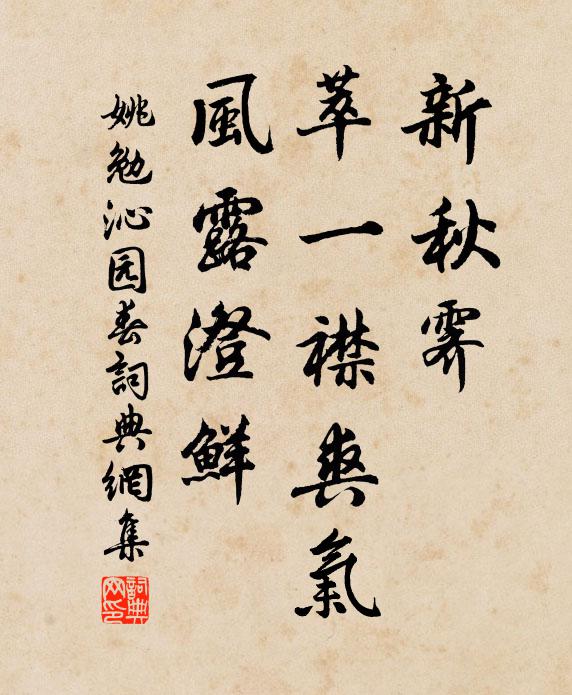 新秋霽
萃一襟爽氣
風露澄鮮
姚勉沁园春詞典網集
詞典网印